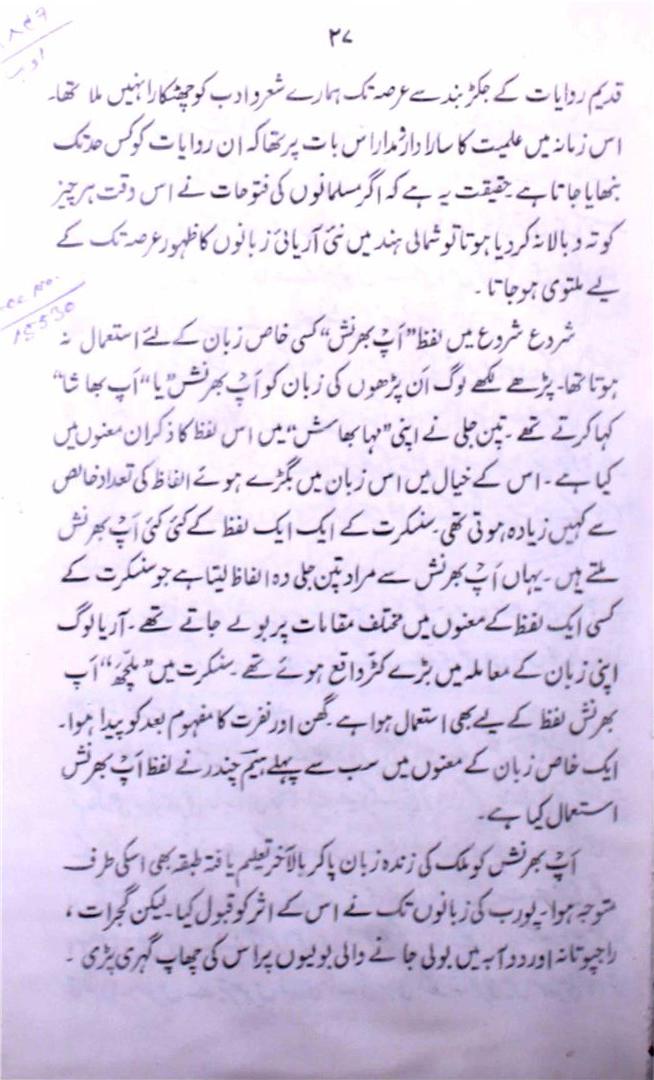 ۲۷
قدیم روایات کے جکڑ بند سے عرصہ تک ہمارے شعر و ادب کو چھٹکارا نہیں ملا تھا۔
اس زمانہ میں علمیت کا سارا دارومدار اس بات پر تھا کہ ان روایات کو کس حد تک
نبھایا جاتا ہے۔ حقیقت یہ ہے کہ اگر مسلمانوں کی فتوحات نے اس وقت ہر چیز
کو تہ و بالا نہ کر دیا ہوتا تو شمالی ہند میں نئی آریائی زبانوں کا ظہور عرصہ تک کے
لیے ملتوی ہو جاتا۔
شروع شروع میں لفظ ”اَپ بھرنش“ کسی خاص زبان کے لئے استعمال نہ
ہوتا تھا۔ پڑھے لکھے لوگ اَن پڑھوں کی زبان کو اَپ بھرنش یا ”اَپ بھاشا“
کہا کرتے تھے۔ تپن جلی نے اپنی ”مہا بھاسش“ میں اس لفظ کا ذکر ان معنوں میں
کیا ہے۔ اس کے خیال میں اس زبان میں بگڑے ہوئے الفاظ کی تعداد خالص
سے کہیں زیادہ ہوتی تھی۔ سنکرت کے ایک ایک لفظ کے کئی کئی اَپ بھرنش
ملتے ہیں۔ یہاں اَپ بھرنش سے مراد تپن جلی وہ الفاظ لیتا ہے جو سنسکرت کے
کسی ایک لفظ کے معنوں میں مختلف مقامات پر بولے جاتے تھے۔ آریا لوگ
اپنی زبان کے معاملہ میں بڑے کٹر واقع ہوئے تھے۔ سنکرت میں ”ملچھ“ اَپ
بھرنش لفظ کے لیے بھی استعمال ہوا ہے۔ گھن اور نفرت کا مفہوم بعد کو پیدا ہوا۔
ایک خاص زبان کے معنوں میں سب سے پہلے ہیم چندر نے لفظ اَپ بھرنش
استعمال کیا ہے۔
اَپ بھرنش کو ملک کی زندہ زبان پا کر بالآخر تعلیم یافتہ طبقہ بھی اسکی طرف
متوجہ ہوا۔ پورب کی زبانوں تک نے اس کے اثر کو قبول کیا۔ لیکن گجرات،
راجپوتانہ اور دوآبہ میں بولی جانے والی بولیوں پر اس کی چھاپ گہری پڑی۔